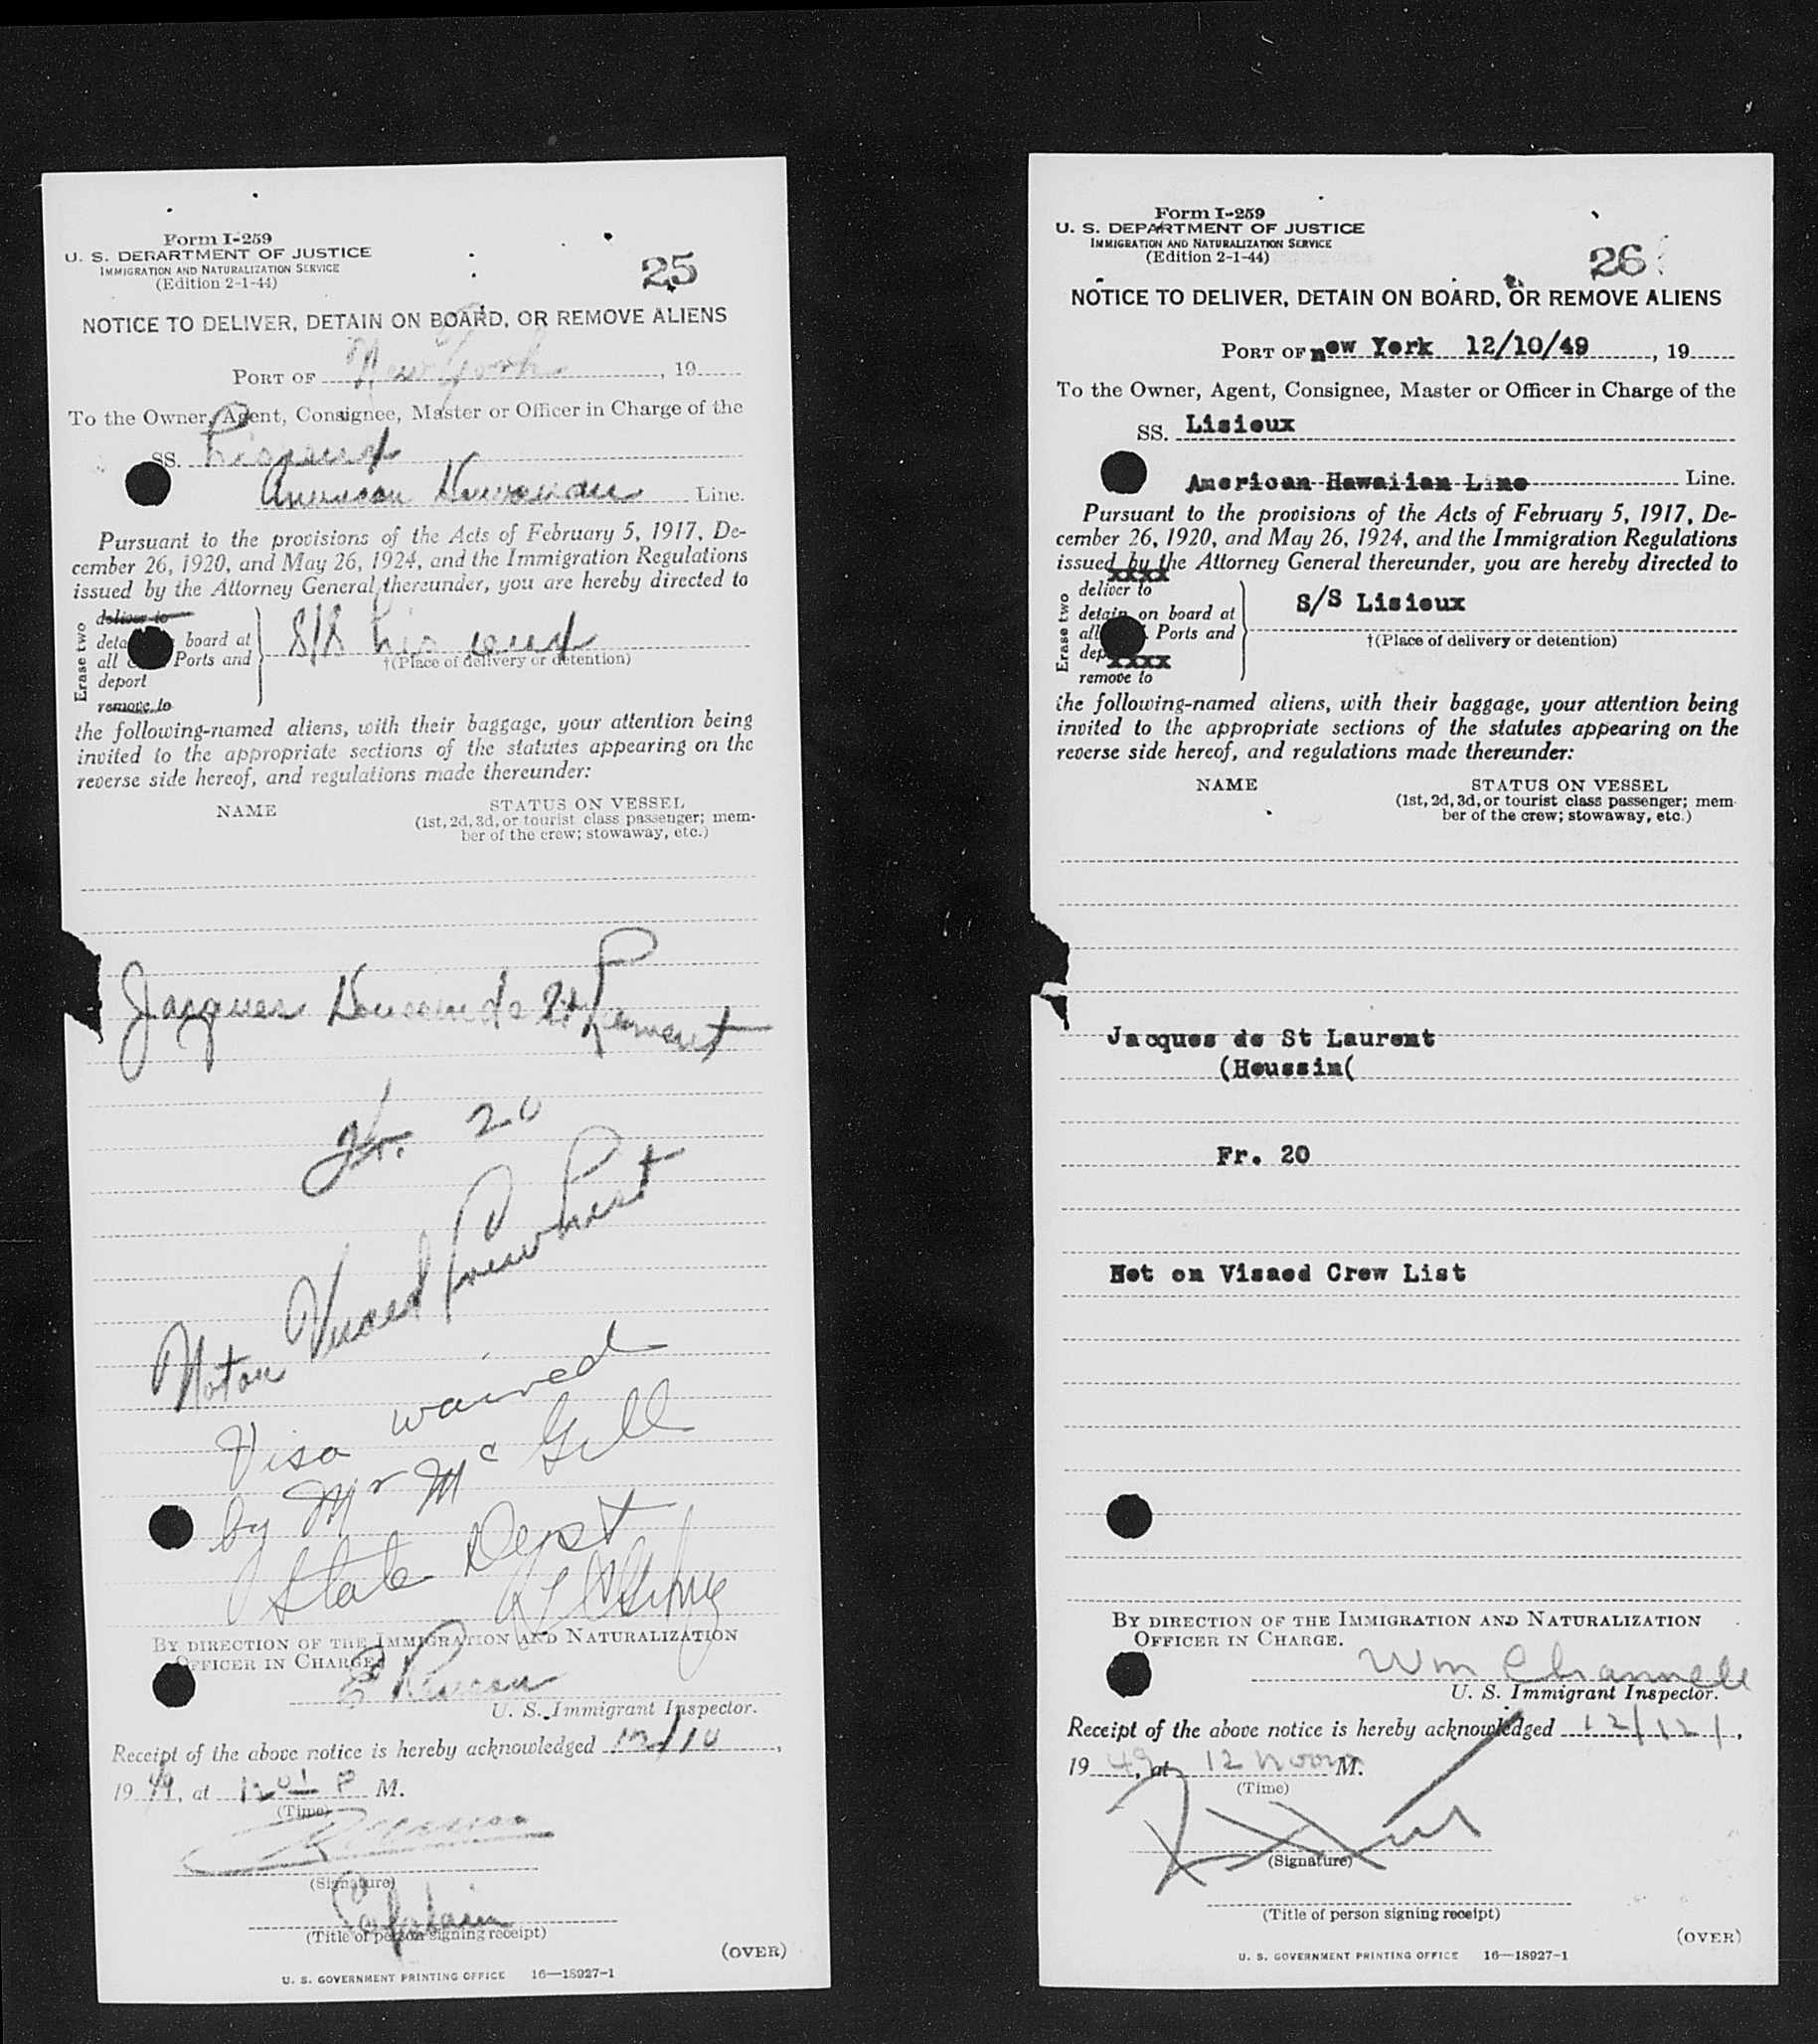 Form I-259
U. S. DEPARTMENT OF JUSTICE
IMMIGRATION AND NATURALIZATION SERVICE
(Edition 2-1-44)
25
NOTICE TO DELIVER, DETAIN ON BOARD, OR REMOVE ALIENS
PORT OF New York, 19
To the Owner, Agent, Consignee, Master or Officer in Charge of the
SS. Lisieux
American Hawaiian Line.
Pursuant to the provisions of the Acts of February 5, 1917, De-
cember 26, 1920, and May 26, 1924, and the Immigration Regulations
issued by the Attorney General thereunder, you are hereby directed to
Erase two
deliver to
board at
all Ports and
deport
remove to
S/S Lisieux
†(Place of delivery or detention)
the following-named aliens, with their baggage, your attention being
invited to the appropriate sections of the statutes appearing on the
reverse side hereof, and regulations made thereunder:
NAME
STATUS ON VESSEL
(1st, 2d, 3d, or tourist class passenger; mem-
ber of the crew; stowaway, etc.)
Jacques de St Laurent
Fr. 20
Not on Visaed Crew List
Visa waived
by Mr McGill
State Dept
BY DIRECTION OF THE IMMIGRATION AND NATURALIZATION
OFFICER IN CHARGE.
U. S. Immigrant Inspector.
Receipt of the above notice is hereby acknowledged 12/10,
1949, at P M.
(Time)
(Signature)
Captain
(Title of person signing receipt)
(OVER)
U. S. GOVERNMENT PRINTING OFFICE 16—18927-1
Form I-259
U. S. DEPARTMENT OF JUSTICE
IMMIGRATION AND NATURALIZATION SERVICE
(Edition 2-1-44)
26
NOTICE TO DELIVER, DETAIN ON BOARD, OR REMOVE ALIENS
PORT OF New York 12/10/49, 19
To the Owner, Agent, Consignee, Master or Officer in Charge of the
SS. Lisieux
American Hawaiian Line Line.
Pursuant to the provisions of the Acts of February 5, 1917, De-
cember 26, 1920, and May 26, 1924, and the Immigration Regulations
issued by the Attorney General thereunder, you are hereby directed to
xxxx
Erase two
deliver to
detain on board at
all Ports and
xxxx
remove to
S/S Lisieux
†(Place of delivery or detention)
the following-named aliens, with their baggage, your attention being
invited to the appropriate sections of the statutes appearing on the
reverse side hereof, and regulations made thereunder:
NAME
STATUS ON VESSEL
(1st, 2d, 3d, or tourist class passenger; mem-
ber of the crew; stowaway, etc.)
Jacques de St Laurent
(Houssin(
Fr. 20
Not on Visaed Crew List
BY DIRECTION OF THE IMMIGRATION AND NATURALIZATION
OFFICER IN CHARGE.
Wm Channell
U. S. Immigrant Inspector.
Receipt of the above notice is hereby acknowledged 12/12/,
1949, at 12 Noon M.
(Time)
(Signature)
(Title of person signing receipt)
(OVER)
U. S. GOVERNMENT PRINTING OFFICE 16—18927-1